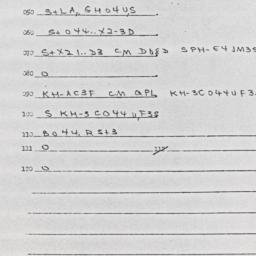 050 S+LA, GHO4U,S
060 S+ O44..X2-3D
070 S+X21..D3 CM DDGD SPH-E4JM3S
080 O
090 KH-AC3F CM QPL KH-3CO44UF3.
100 S KH-3CO44U,F3S
110 BO44,RS+3
111 O
120 O